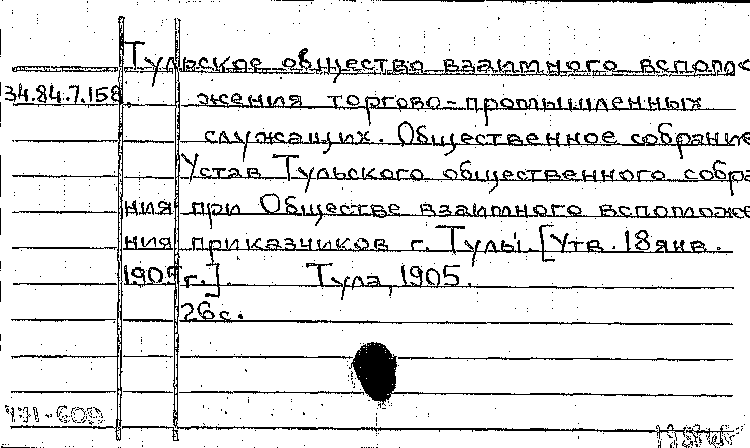 Тульское общество взаимного вспомо
34.84.7.158. жения торгово-промышленных
служащих. Общественное собрание
Устав Тульского общественного собра
ния при Обществе взаимного вспоможе
ния приказчиков г. Тулы. [Утв. 18 янв.
1905 г.]. Тула, 1905.
26 с.